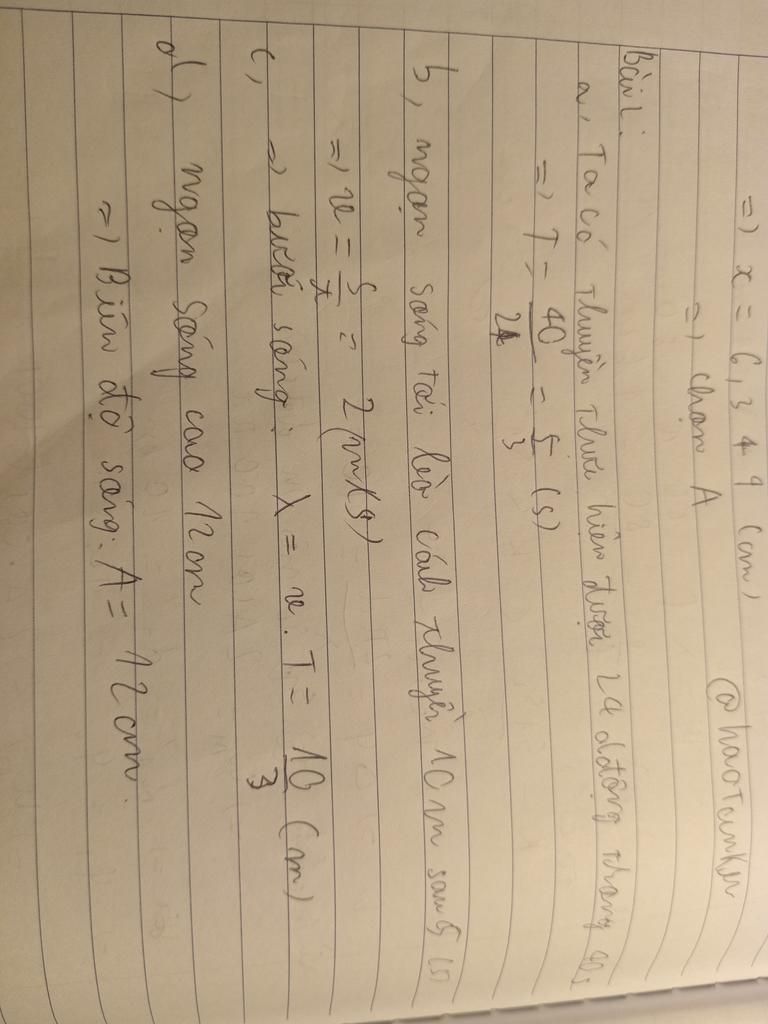 => x = 6,349 (cm)
=> chọn A
@haoTanku
Bài 1:
a, Ta có thuyền thực hiện được 24 dđộng trong 40s
=> T = 40/24 = 5/3 (s)
b, ngọn sóng tới bờ cách thuyền 10m sau 5 (s)
=> v = s/t = 2 (m/s)
c, => bước sóng: λ = v.T = 10/3 (m)
d, ngọn sóng cao 12cm
=> Biên độ sóng: A = 12cm.